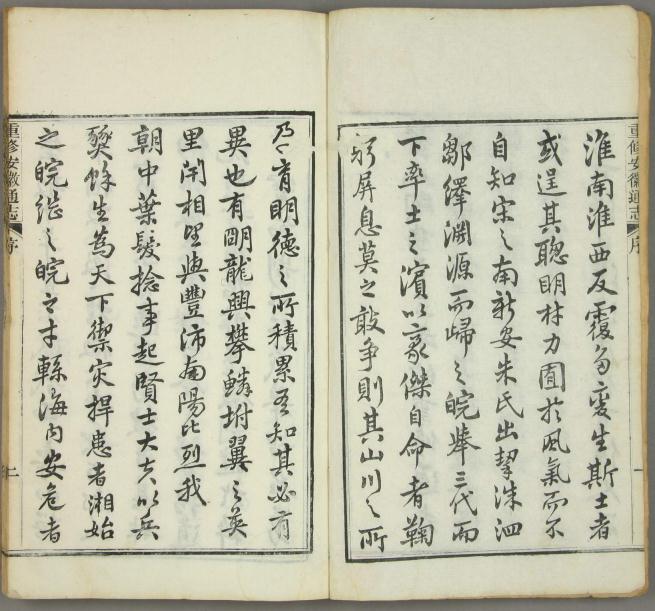 重修安徽通志
序
一
淮南淮西反覆多變生斯土者
或逞其聰明材力囿於風氣而不
自知宋之南新安朱氏出挈洙泗
鄒繹淵源而歸之皖舉三代而
下率土之濱以豪傑自命者鞠
躬屏息莫之敢爭則其山川之所
乃育明德之所積累吾知其必有
異也有明龍興攀鱗坿翼之英
里閈相望與豐沛南陽比烈我
朝中葉髮捻事起賢士大夫以兵
燹餘生為天下禦灾捍患者湘始
之皖繼之皖之才繇海內安危者
重修安徽通志
序
二